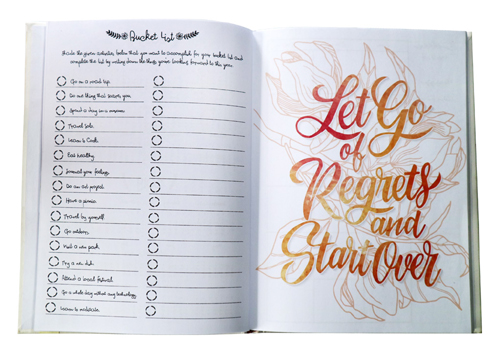 Bucket List
Circle the given activities below that you want to accomplish for your bucket list and
complete the list by writing down the things you're looking forward to this year.
Go on a road trip
Do one thing that scares you
Spend a day in a museum
Travel solo
Learn to Cook
Eat healthy
Journal your feelings
Do an art project
Have a picnic
Travel by yourself
Go outdoors
Visit a new park
Try a new dish
Attend a local festival
Go a whole day without any technology
Learn to meditate
Let Go
of
Regrets
and
Start Over